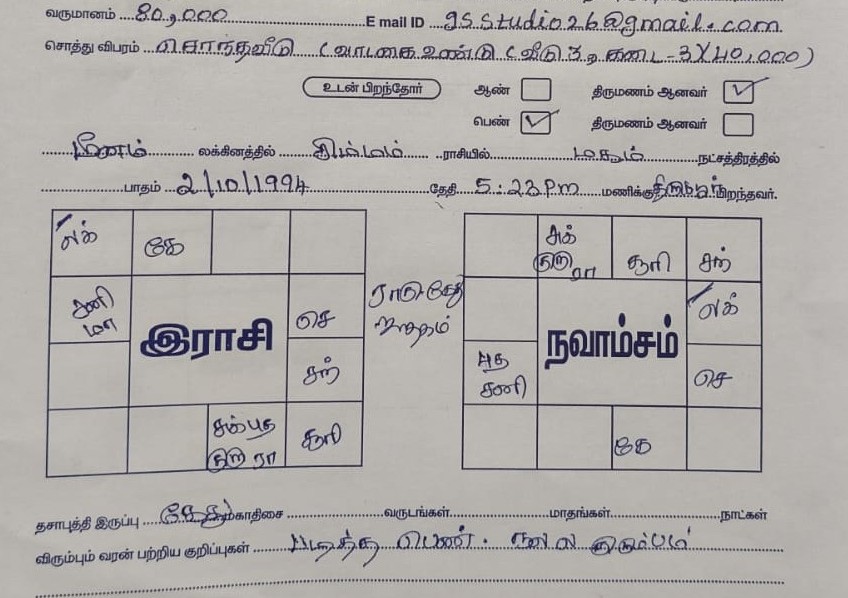 வருமானம் 80,000 E mail ID gsstudio26@gmail.com
சொத்து விபரம் சொந்தவீடு (வாடகை உண்டு (வீடு 3, கடை - 3) 40,000)
உடன் பிறந்தோர் ஆண் திருமணம் ஆனவர்
பெண் திருமணம் ஆனவர்
மீனம் லக்கினத்தில் சிம்மம் ராசியில் மகம் நட்சத்திரத்தில்
பாதம் 2/10/1994 தேதி 5:23 Pm மணிக்கு பிறந்தவர்.
லக் கே
சனி மா
செ
சந்
சுக் புத குரு ரா
சூரி
இராசி
ராகு கேது ஜாதகம்
சுக் குரு ரா
சூரி
சந்
லக்
புத சனி
செ
கே
நவாம்சம்
தசாபுத்தி இருப்பு கேது மகாதிசை வருடங்கள் மாதங்கள் நாட்கள்
விரும்பும் வரன் பற்றிய குறிப்புகள் படித்த பெண். நல்ல குடும்பம்